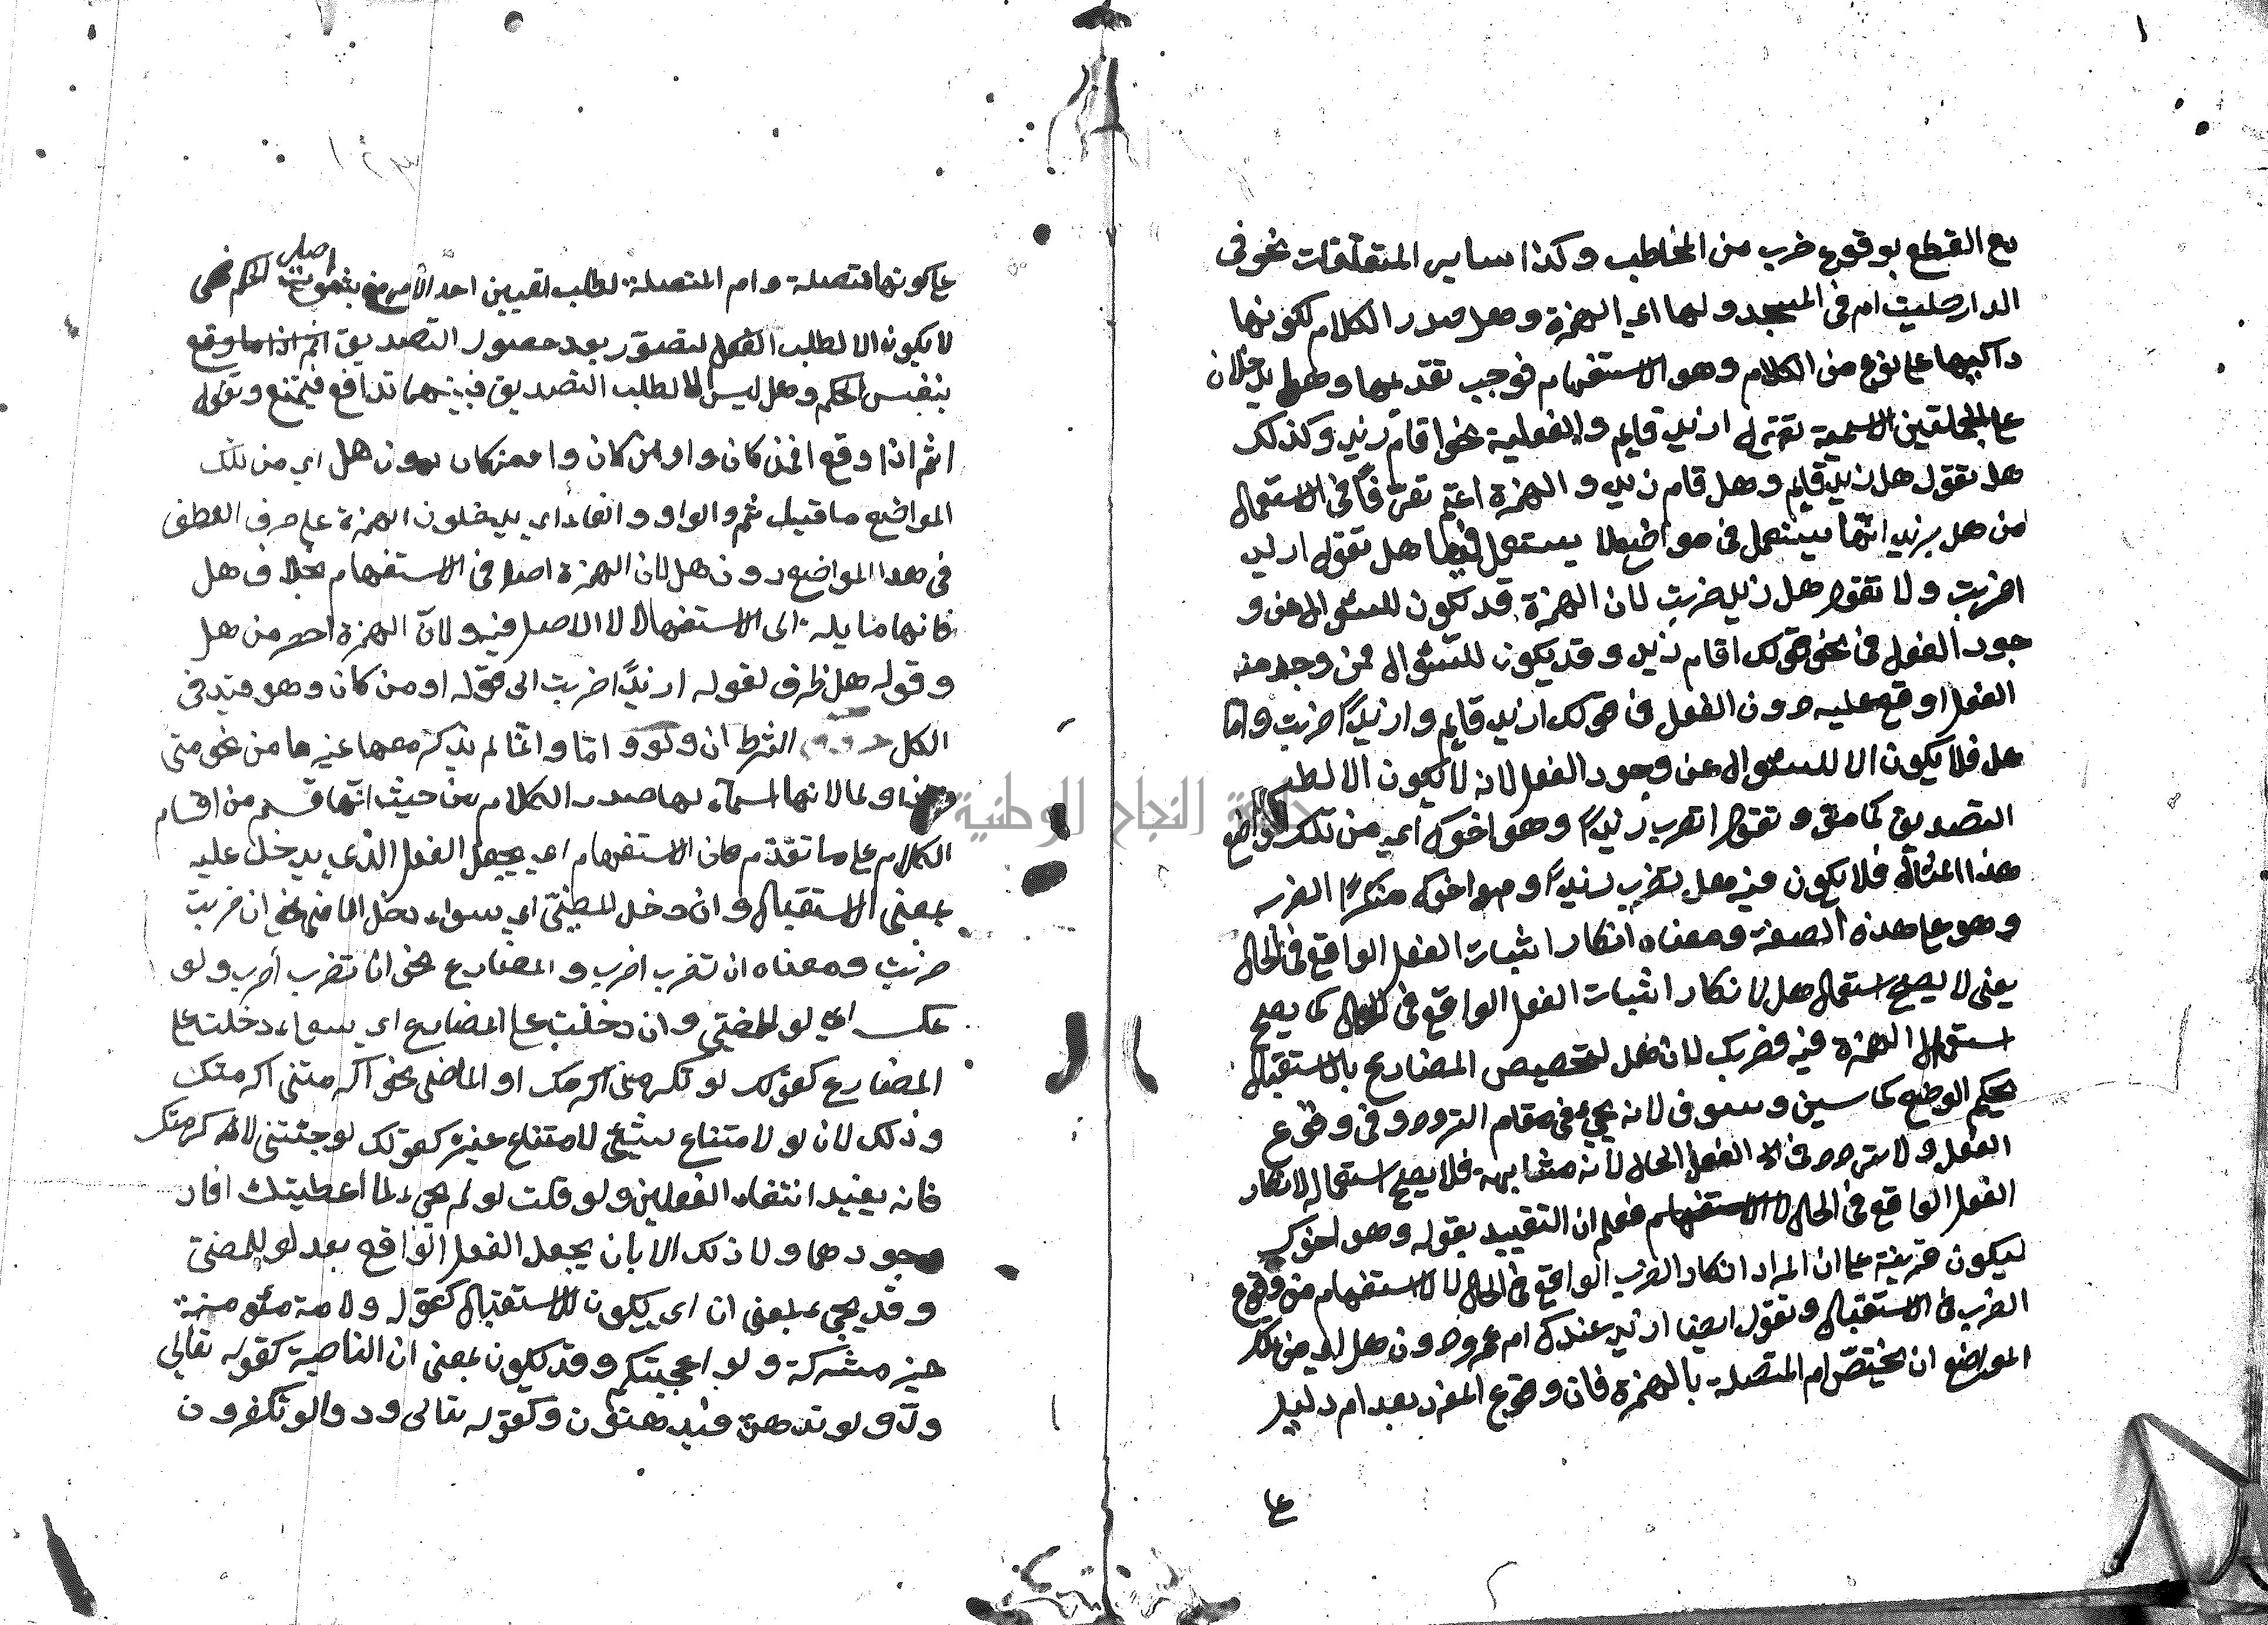 مع القطع بوقوع ضرب من المخاطب وكذا ساير المتعلقات نحو فى
الدار صليت ام فى المسجد ولها اي الهمزة وهل صدر الكلام لكونها
دالتها على نوع من الكلام وهو الاستفهام فوجب تقدمها وهما يدخلان
على الجملتين الاسمية تقول ازيد قايم والفعلية نحو اقام زيد وكذلك
هل تقول هل زيد قايم وهل قام زيد والهمزة اعم تصرفا فى الاستعمال
من هل يريد انها يستعمل فى مواضع لا يستعمل فيها هل تقول ازيدا
اضربت ولا تقول هل زيدا ضربت لان الهمزة قد تكون للسئوال عن و
جود الفعل فى نحو قولك اقام زيد وقد يكون للسئوال عمن وجد منه
الفعل او وقع عليه دون الفعل فى قولك ازيد قايم وازيدًا ضربت واما
هل فلا يكون الا للسئوال عن وجود الفعل لانه لا يكون الا لطلب
التصديق كما مر وتقول اتضرب زيدًا وهو اخوك اي من تلك المواضع
هذا المثال فلا يكون فيه هل تضرب زيدًا وهو اخوك منكرًا لضربه
وهو على هذه الصفة ومعناه انكار اثبات الفعل الواقع فى الحال
يعنى لا يصح استعمال هل لانكار اثبات الفعل الواقع فى الحال كما يصح
استعمال الهمزة فيه وضربك لان هل لتخصيص المضارع بالاستقبال
بحكم الوضع كما سين وسوف لانه يجئ فى مقام التردد وفى وقوع
الفعل ولا تردد فى الفعل الحال لانه مشابهة فلا يصح استعماله لانكار
الفعل الواقع فى الحال لا الاستفهام فعلم ان التقييد بقوله وهو اخوك
ليكون قرينة على ان المراد انكار الضرب الواقع فى الحال لا الاستفهام من وقوع
الضرب فى الاستقبال وتقول ايضا ازيد عندك ام عمرو دون هل اي من تلك
المواضع ان يختص ام المتصلة بالهمزة فان وقوع المفرد بعد ام دليل
على
على كونها متصلة وام المتصلة لطلب تعيين احد الامرين مع ثبوت اصل الحكم فهى
لا يكون الا لطلب التصور بعد حصول التصديق
بنفس الحكم وهل ليس الا لطلب التصديق فبينهما تدافع فيمتنع وتقول
اثم اذا وقع افمن كان واو من كان دون هل اي من تلك
المواضع ما قبيل ثم والواو والفاء اي يدخلون الهمزة على حرف العطف
فى هذا المواضع دون هل لان الهمزة اصل فى الاستفهام بخلاف هل
فانها مايلة الى الاستفهام لا الاصل فيه ولان الهمزة اخصر من هل
وقوله هل ظرف لقوله ازيدًا ضربت الى قوله او من كان وهو قيد فى
الكل الشرط ان ولو واما وانما لم يذكر معها غيرها من نحو متى
ولما لانها اسماء لها صدر الكلام من حيث انها قسم من اقسام
الكلام على ما تقدم فان الاستفهام اي يجعل الفعل الذي يدخل عليه
بمعنى الاستقبال وان دخل للمضى اي سواء دخل الماضى نحو ان ضربت
ضربت ومعناه ان تضرب اضرب والمضارع نحو ان تضرب أضرب ولو
عكسه اي لو للمضى وان دخلت على المضارع اي سواء دخلت على
المضارع كقولك لو تكرمنى اكرمك او الماضى نحو اكرمتنى اكرمتك
وذلك لان لو لامتناع شيئ لامتناع غيره كقولك لو جئتنى لاكرمتك
فانه يفيد انتفاء الفعلين ولو قلت لو لم تجىء لما اعطيتك افاد
وجودهما ولا ذلك الا بان يجعل الفعل الواقع بعد لو للمضى
وقد يجىء بمعنى ان اي يكون للاستقبال كقوله ولامة مئومنة
خير مشركة ولو اعجبتكم وقد يكون بمعنى ان الناصبة كقوله تعالى
ودوا لو تدهن فيدهنون وكقوله تعالى ودوا لو تكفرون
جامعة النجاح الوطنية